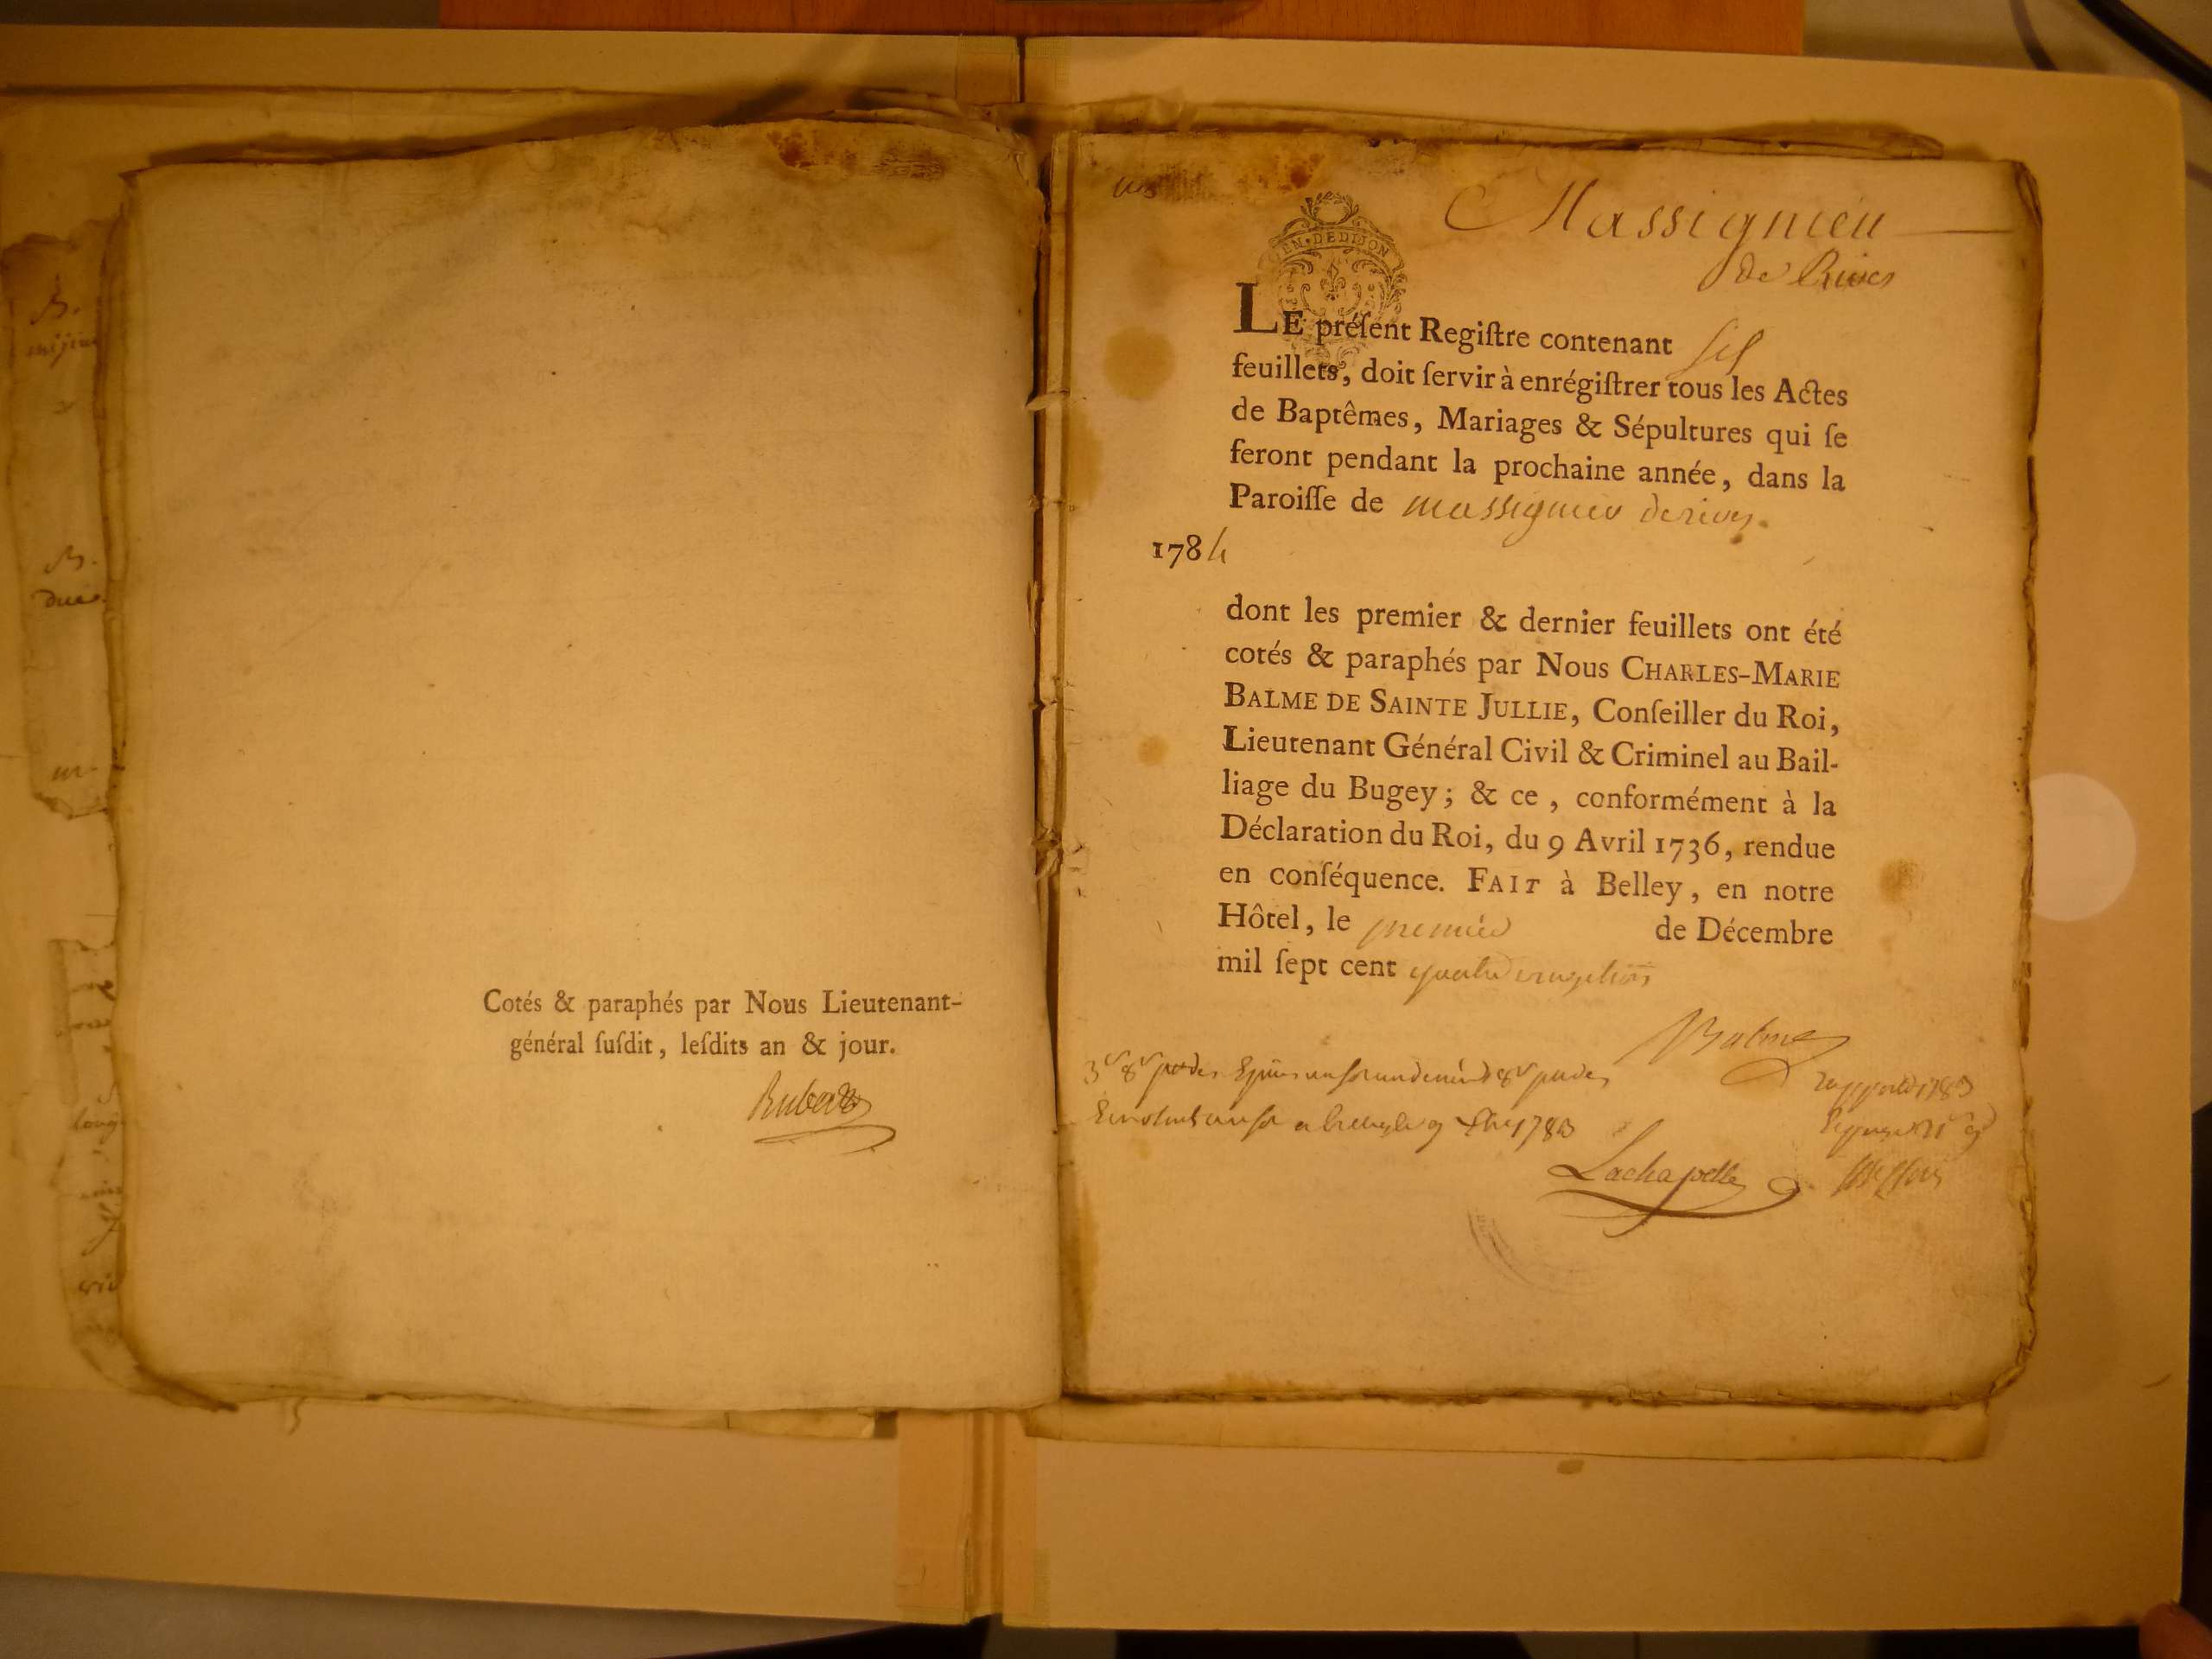 Cotés & paraphés par Nous Lieutenant-
général ſuſdit, leſdits an & jour.
Massignieu
de Rives
EN·DEDIJON
LE préſent Regiſtre contenant
feuillets, doit ſervir à enrégiſtrer tous les Actes
de Baptêmes, Mariages & Sépultures qui ſe
feront pendant la prochaine année, dans la
Paroiſſe de massignieu derives.
1784
dont les premier & dernier feuillets ont été
cotés & paraphés par Nous CHARLES-MARIE
BALME DE SAINTE JULLIE, Conſeiller du Roi,
Lieutenant Général Civil & Criminel au Bail-
liage du Bugey; & ce, conformément à la
Déclaration du Roi, du 9 Avril 1736, rendue
en conſéquence. FAIT à Belley, en notre
Hôtel, le premier de Décembre
mil ſept cent quatre vingt trois
Balme
1783
1783
Lachapelle